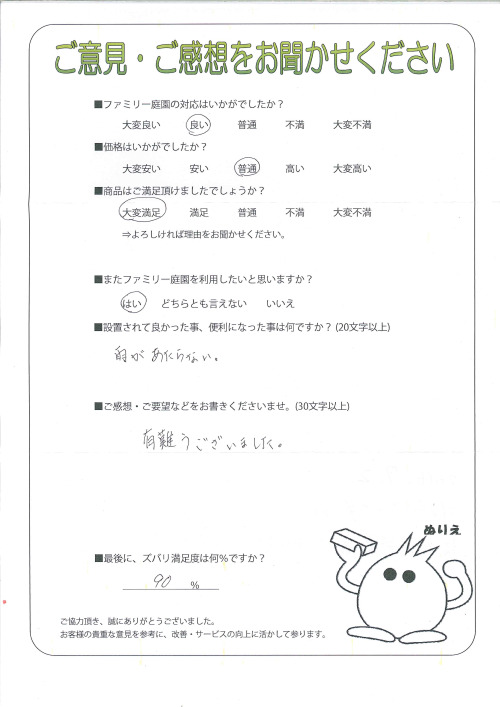 ご意見・ご感想をお聞かせください
■ファミリー庭園の対応はいかがでしたか？
大変良い 良い 普通 不満 大変不満
■価格はいかがでしたか？
大変安い 安い 普通 高い 大変高い
■商品はご満足頂けましたでしょうか？
大変満足 満足 普通 不満 大変不満
⇒よろしければ理由をお聞かせください。
■またファミリー庭園を利用したいと思いますか？
はい どちらとも言えない いいえ
■設置されて良かった事、便利になった事は何ですか？(20文字以上)
雨があたらない。
■ご感想・ご要望などをお書きくださいませ。(30文字以上)
有難うございました。
ぬりえ
■最後に、ズバリ満足度は何％ですか？
90 %
ご協力頂き、誠にありがとうございました。
お客様の貴重な意見を参考に、改善・サービスの向上に活かして参ります。